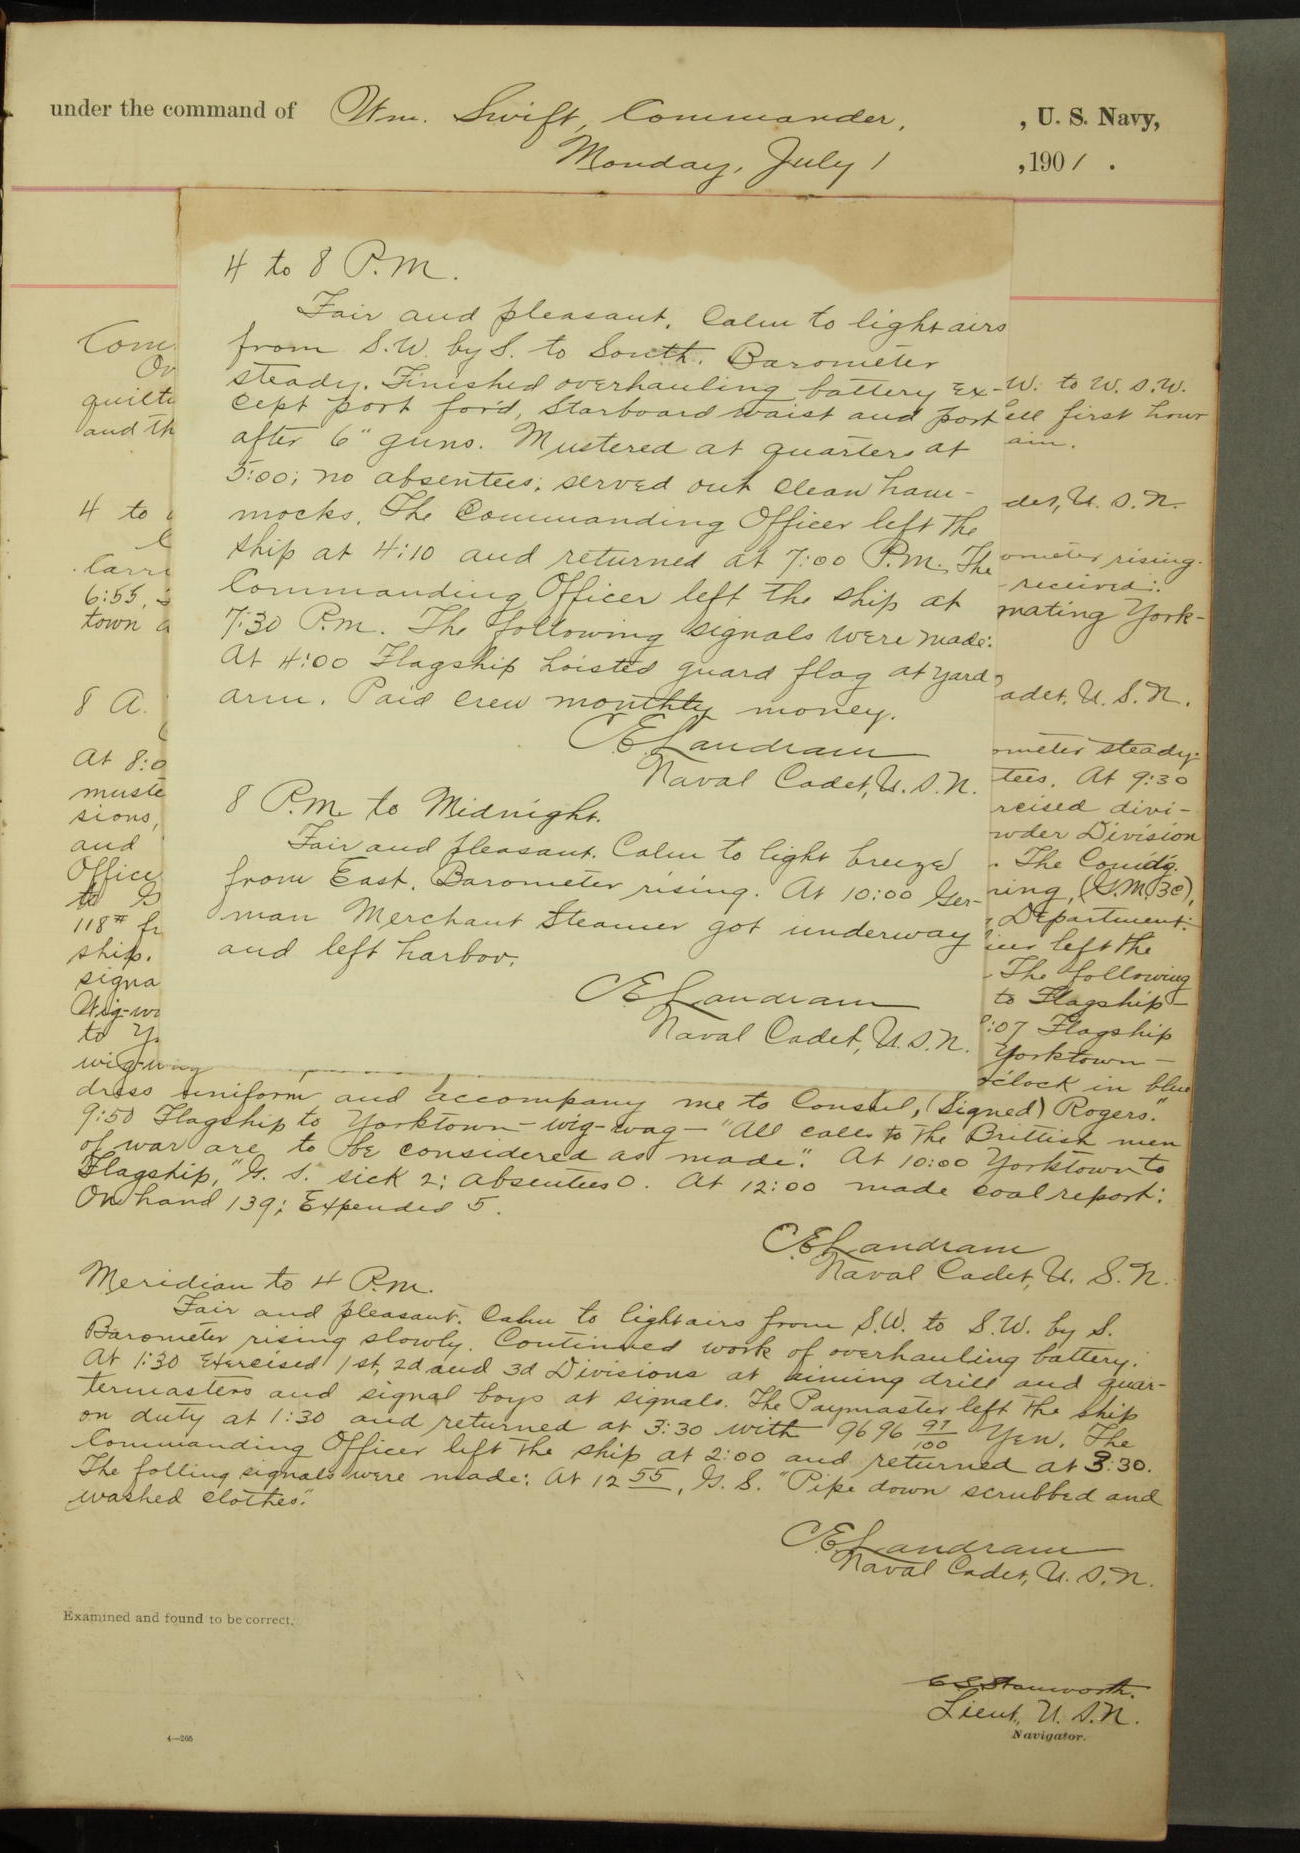 under the command of Wm. Swift, Commander, , U. S. Navy,
Monday, July 1 , 1901 .
4 to 8 P.M.
Fair and pleasant. Calm to light airs
from S.W. by S. to South. Barometer
steady. Finished overhauling battery ex-
cept port for'd, Starboard waist and port
after 6" guns. Mustered at quarters at
5:00; no absentees; served out clean ham-
mocks. The Commanding Officer left the
ship at 4:10 and returned at 7:00 P.M. The
Commanding Officer left the ship at
7:30 P.M. The following signals were made:
At 4:00 Flagship hoisted guard flag at yard
arm. Paid crew monthly money.
C E Landram
Naval Cadet, U.S.N.
8 P.M. to Midnight.
Fair and pleasant. Calm to light breeze
from East. Barometer rising. At 10:00 Ger-
man Merchant Steamer got underway
and left harbor.
C E Landram
Naval Cadet, U.S.N.
Com
On
quilt
and th
4 to
Carri
6:55,
town a
8 A.
At 8:0
muste
sions,
and
Office
to G
118# fr
ship.
signa
Wig-wa
to Y
wig-wag
W. to W.S.W.
ell first hour
ain.
der, U.S.N.
ometer rising.
received:
mating York-
adet, U.S.N.
ometer steady.
tees. At 9:30
rcised divi-
wder Division
. The Comdg.
ning, (G.M. 3c),
Department:
icer left the
The following
to Flagship—
:07 Flagship
Yorktown —
o'clock in blue
dress uniform and accompany me to Consul, (Signed) Rogers."
9:50 Flagship to Yorktown — wig-wag — "All calls to the Brittish men
of war are to be considered as made." At 10:00 Yorktown to
Flagship, "G. S. sick 2; absentees 0. At 12:00 made coal report:
On hand 139; Expended 5.
C E Landram
Naval Cadet, U. S. N.
Meridian to 4 P.M.
Fair and pleasant. Calm to light airs from S.W. to S.W. by S.
Barometer rising slowly. Continued work of overhauling battery.
At 1:30 Exercised 1st, 2d and 3d Divisions at aiming drill and quar-
termasters and signal boys at signals. The Paymaster left the ship
on duty at 1:30 and returned at 3:30 with 9696 97/100 Yen. The
Commanding Officer left the ship at 2:00 and returned at 3:30.
The folling signals were made: At 12 55, G. S. "Pipe down scrubbed and
washed clothes."
C E Landram
Naval Cadet, U.S.N.
Examined and found to be correct.
C S Stanworth.
Lieut, U.S.N.
Navigator.
4—205